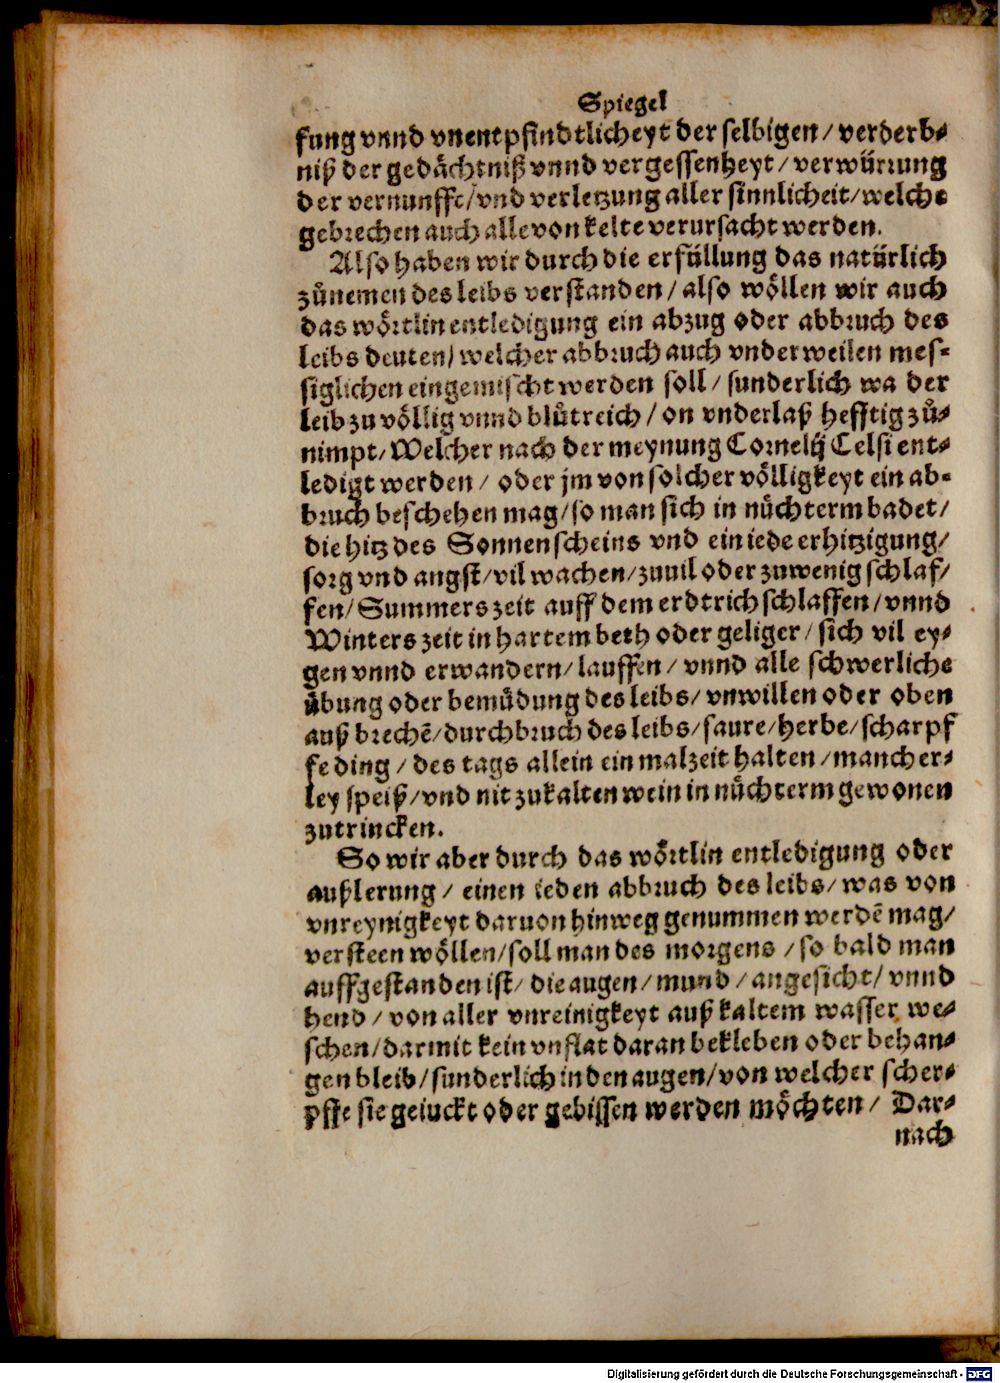 Spiegel
fung vnnd vnentpfindtlicheyt der selbigen / verderb⸗
niß der gedächtniß vnnd vergessenheyt / verwürrung
der vernunfft / vnd verletzung aller sinnlicheit / welche
gebrechen auch alle von kelte verursacht werden.
Also haben wir durch die erfüllung das natürlich
zůnemen des leibs verstanden / also wöllen wir auch
das wörtlin entledigung ein abzug oder abbruch des
leibs deuten / welcher abbruch auch vnderweilen mes⸗
siglichen eingemischt werden soll / sunderlich wa der
leib zu völlig vnnd blůtreich / on vnderlaß hefftig zů⸗
nimpt / Welcher nach der meynung Cornelij Celsi ent⸗
ledigt werden / oder jm von solcher völligkeyt ein ab⸗
bruch beschehen mag / so man sich in nüchterm badet /
die hitz des Sonnenscheins vnd ein iede erhitzigung /
sorg vnd angst / vil wachen / zuuil oder zuwenig schlaf /
fen / Summers zeit auff dem erdtrich schlaffen / vnnd
Winters zeit in hartem beth oder geliger / sich vil ey⸗
gen vnnd erwandern / lauffen / vnnd alle schwerliche
übung oder bemüdung des leibs / vnwillen oder oben
auß brechẽ / durchbruch des leibs / saure / herbe / scharpf
fe ding / des tags allein ein malzeit halten / mancher⸗
ley speiß / vnd nit zukalten wein in nüchterm gewonen
zutrincken.
So wir aber durch das wörtlin entledigung oder
außlerung / einen ieden abbruch des leibs / was von
vnreynigkeyt daruon hinweg genummen werdẽ mag /
versteen wöllen / soll man des morgens / so bald man
auffgestanden ist / die augen / mund / angesicht / vnnd
hend / von aller vnreinigkeyt auß kaltem wasser we⸗
schen / darmit kein vnflat daran bekleben oder behan⸗
gen bleib / sunderlich in den augen / von welcher scher⸗
pffe sie geiuckt oder gebissen werden möchten / Dar⸗
nach
Digitalisierung gefördert durch die Deutsche Forschungsgemeinschaft - DFG